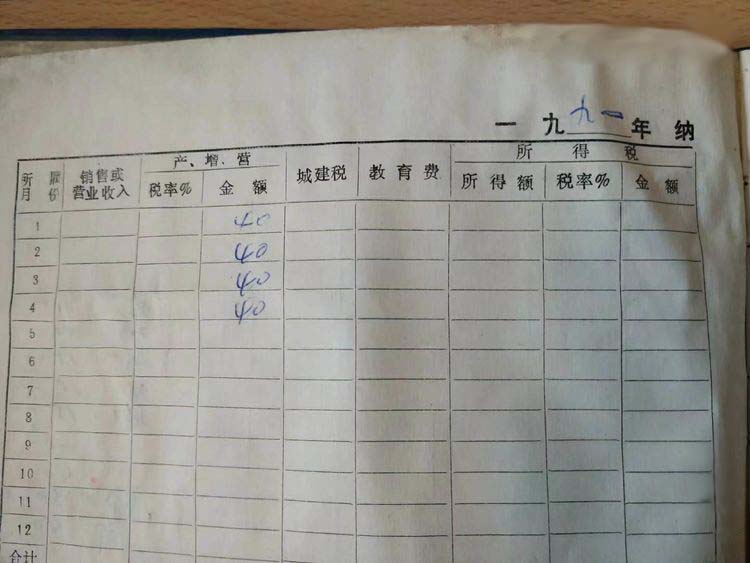 一九九一年纳
所属月份 销售或营业收入 产、增、营 城建税 教育费 所得税
税率% 金额 所得额 税率% 金额
1 40
2 40
3 40
4 40
5
6
7
8
9
10
11
12
合计